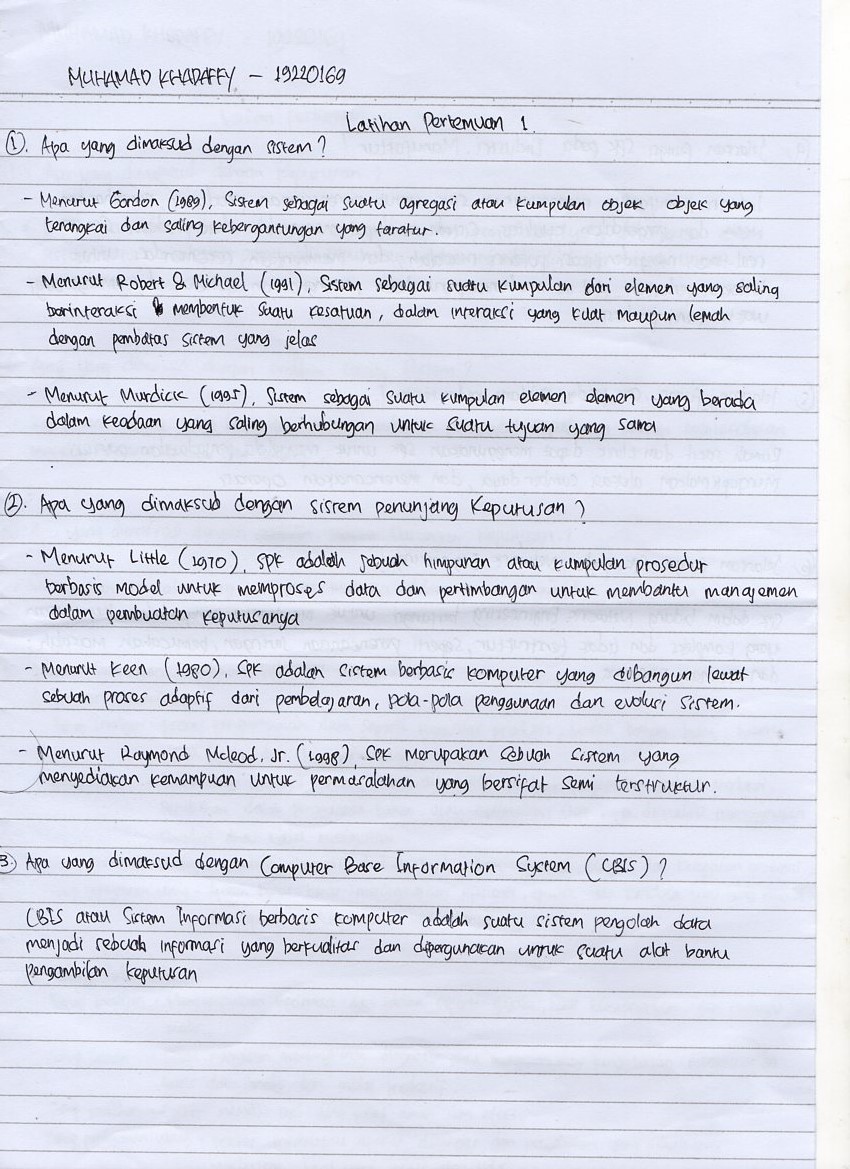 MUHAMAD KHADAFFY – 19220169
Latihan Pertemuan 1.
①. Apa yang dimaksud dengan sistem?
- Menurut Gordon (1989), Sistem sebagai suatu agregasi atau kumpulan objek objek yang
terangkai dan saling kebergantungan yang taratur.
- Menurut Robert & Michael (1991), Sistem sebagai suatu kumpulan dari elemen yang saling
barinteraksi membentuk suatu kesatuan, dalam interaksi yang kuat maupun lemah
dengan pembatas sistem yang jelas
- Menurut Murdick (1995), Sistem sebagai suatu kumpulan elemen elemen yang berada
dalam keadaan yang saling berhubungan untuk suatu tujuan yang sama
②. Apa yang dimaksud dengan sistem penunjang keputusan?
- Menurut Little (1970), SPK adalah sebuah himpunan atau kumpulan prosedur
berbasis model untuk memproses data dan pertimbangan untuk membantu manajemen
dalam pembuatan keputusanya
- Menurut Keen (1980), SPK adalah sistem berbasis komputer yang dibangun lewat
sebuah proses adaptif dari pembelajaran, pola-pola penggunaan dan evolusi sistem.
- Menurut Raymond Mcleod, Jr. (1998), SPK merupakan sebuah sistem yang
menyediakan kemampuan untuk permasalahan yang bersifat semi terstruktur.
3.) Apa yang dimaksud dengan Computer Base Information System (CBIS)?
CBIS atau Sistem Informasi berbasis komputer adalah suatu sistem pengolah data
menjadi sebuah informasi yang berkualitas dan dipergunakan untuk suatu alat bantu
pengambilan keputusan